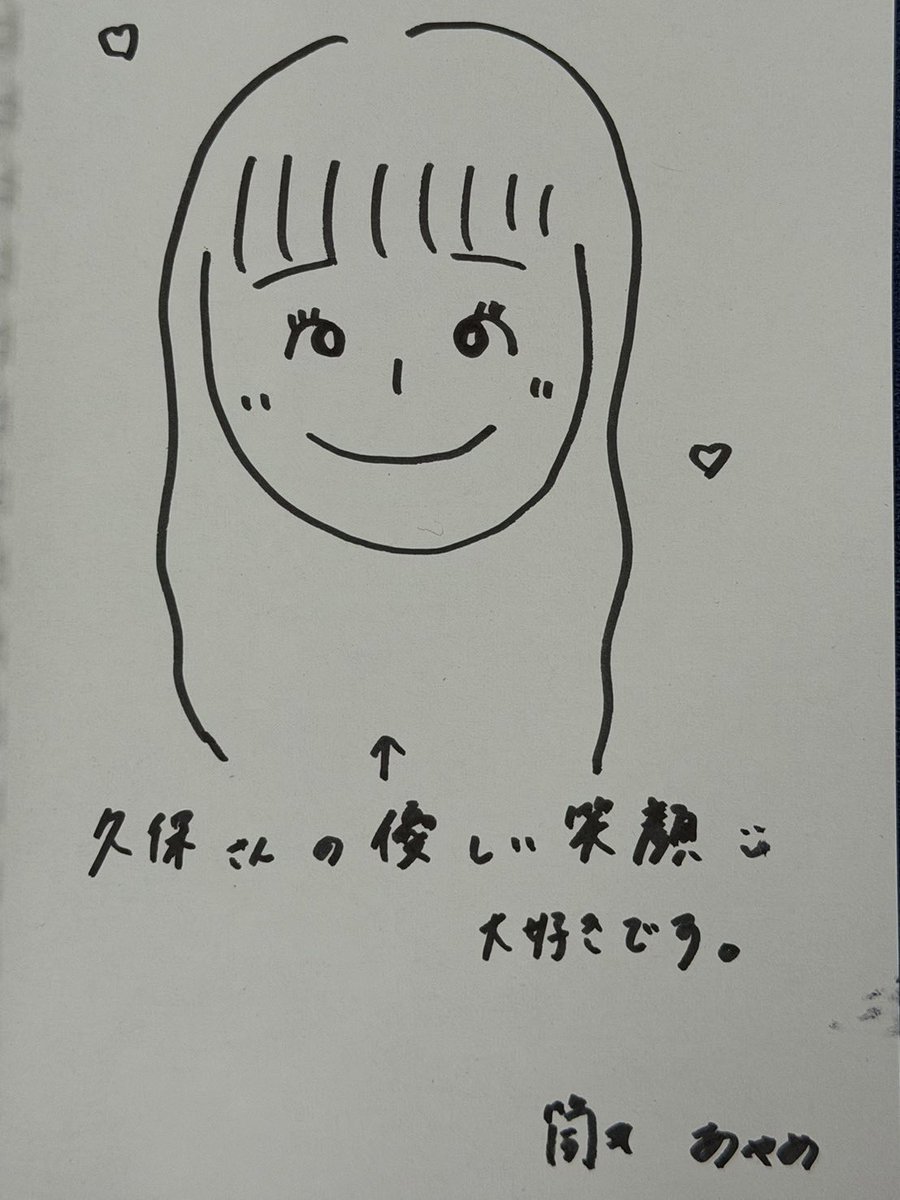 ↑
久保さんの優しい笑顔
大好きです。
筒井 あやめ